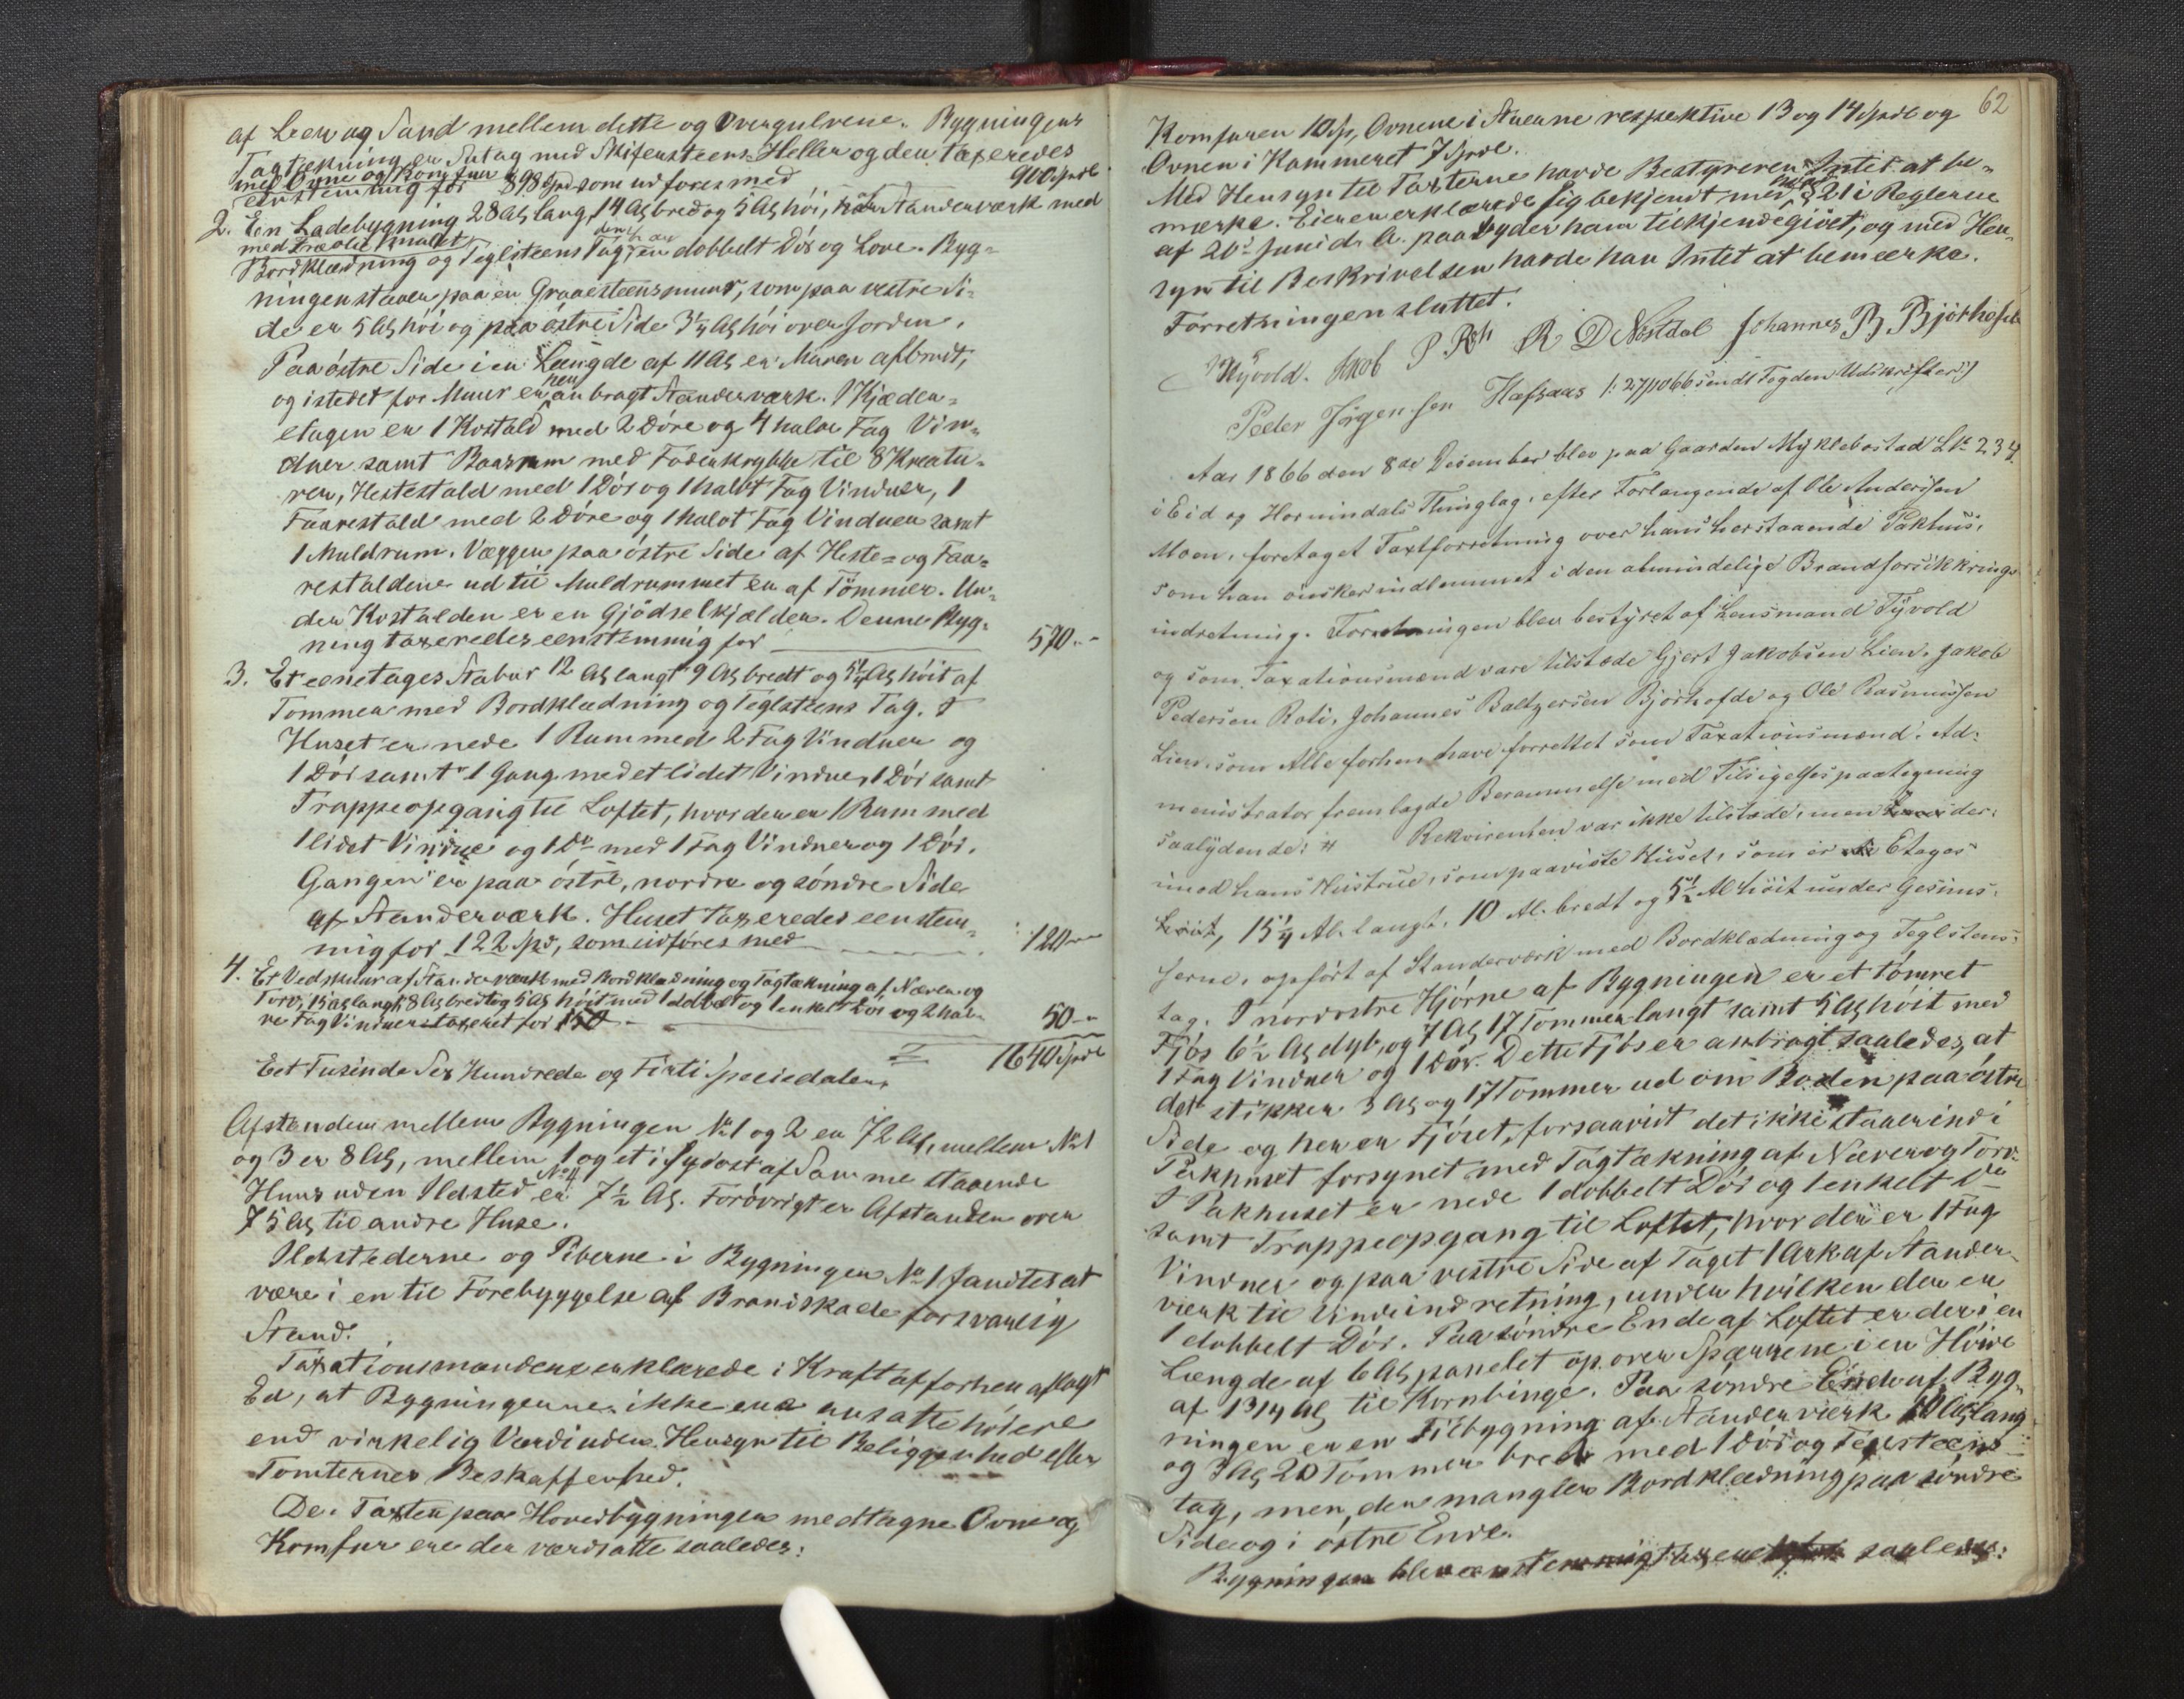 af Leer og Sand mellem dette og Overgulvene. Bygningens
Tagtækning er Sutag med Skifersteens Heller og den taxeredes
med Ovne og Komfur
eenstemmig for 898 Spd som udføres med 900 Spdl
2. Een Ladebygning 28 Al lang, 14 Al bred og 5 Al høi, af Standerværk med
med træolie malet
Bordklædning og Teglsteens Tag, den har en dobbelt Dør og Love. Byg-
ningen staaer paa en Graaesteensmuur, som paa vestre Si-
de er 5 Al høi og paa østre Side 3 1/4 Al høi over Jorden.
Paa østre Side i en Længde af 11 Al er Muren afbrudt,
og istedet for Muur er her anbragt Standerværk. I Kjæder-
etagen er 1 Kostald med 2 Døre og 4 halve Fag Vin-
duer samt Baasrum med Foderkrybbe til 8 Kreatu-
rer, Hestestald med 1 Dør og 1 halvt Fag Vinduer, 1
Faarestald med 2 Døre og 1 halvt Fag Vinduer samt
1 Muldrum. Væggen paa østre Side af Heste- og Faa-
restaldene ud til Muldrummet er af Tømmer. Un-
der Kostalden er en Gjødselkjælder. Denne Byg-
ning taxeredes eenstemmig for 570 "
3. Et eenetages Stabur 12 Al langt 9 Al bredt og 5 1/4 Al høit af
Tømmer med Bordklædning og Teglsteens Tag. I
Huset er nede 1 Rum med 2 Fag Vinduer og
1 Dør samt 1 Gang med et lidet Vindue, 1 Dør samt
Trappeopgang til Loftet, hvor der er 1 Rum med
1 lidet Vindue og 1 Do med 1 Fag Vinduer og 1 Dør.
Gangen er paa østre, nordre og søndre Side
af Standerværk. Huset taxeredes eenstem-
mig for 122 Spd, som udføres med 120 "
4. Et Vedskuur af Standerværk med Bordklædning og Tagtækning af Næver og
Torv, 15 Al langt, 8 Al bredt og 5 Al høit med 1 dobbelt og 1 enkelt Dør og 2 hal-
ve Fag Vinduer taxeret for 50 "
1640 Spdl
Eet Tusinde Sex Hundrede og Firti Speciedaler.
Afstanden mellem Bygningen No 1 og 2 er 72 Al, mellem No 1
og 3 er 8 Al, mellem 1 og et i Sydost af Samme staaende
Huus uden Ildsted No 4 er 7 1/2 Al. Forøvrigt er Afstanden over
75 Al til andre Huse.
Ildstederne og Piberne i Bygningen No 1 fandtes at
være i en til Forebyggelse af Brandskade forsvarlig
Stand.
Taxationsmændene erklærede i Kraft af forhen aflagt
Ed, at Bygningerne ikke ere ansatte høiere
end virkelig Værdi uden Hensyn til Beliggenhed eller
Tomternes Beskaffenhed.
De i Taxten paa Hovedbygningen medtagne Ovne og
Komfur ere der værdsatte saaledes:
62
Komfuren 10 Sp, Ovnene i Stuerne respektive 13 og 14 Spdl og
Ovnen i Kammeret 7 Spdl.
Med Hensyn til Taxterne havde Bestyreren Intet at be-
mærke. Eieren erklærede sig bekjendt med hvad § 21 i Reglerne
af 20de Juni d. A. paabyder ham tilkjendegivet, og med Hen-
syn til Beskrivelsen havde han Intet at bemærke.
Forretningen sluttet.
Tyvold. Jakob P. Roti R D Nøstdal Johannes B Bjørhofde
Peder Jørgensen Hafsaas /: 27/10 66 sendt Fogden Udskrifter :/
Aar 1866 den 8de Desember blev paa Gaarden Myklebostad LNo 234
i Eid og Hornindals Thinglag, efter Forlangende af Ole Anderssen
Moen, foretaget Taxtforretning over hans herstaaende Pakhus,
som han ønsker indlemmet i den almindelige Brandforsikkrings-
indretning. Forretningen blev bestyret af Lensmand Tyvold
og som Taxationsmænd vare tilstæde Gjert Jakobsen Lien, Jakob
Pedersen Roti, Johannes Baltzersen Bjørhofde og Ole Rasmussen
Lien, som Alle forhen have forrettet som Taxationsmænd. Ad-
ministrator fremlagde Berammelse med Tilsigelsespaategning
saalydende: # Rekvirenten var ikke tilstæde, men der-
imod hans Hustrue, som paaviste Huset, som er Etages
høit, 15 1/4 Al. langt, 10 Al. bredt og 5 1/2 Al høit under Gesims-
serne, opført af Standerværk med Bordklædning og Teglstens-
tag. I nordostre Hjørne af Bygningen er et tømret
Fjøs 6 1/2 Al dyb, og 7 Al 17 Tommer langt samt 5 Al høit med
1 Fag Vinduer og 1 Dør. Dette Fjøs er anbragt saaledes, at
det stikker 3 Al og 17 Tommer ud om Boden paa østre
Side og her er Fjøset, forsaavidt det ikke staaer ind i
Pakhuset forsynet med Tagtækning af Næver og Torv.
I Pakhuset er nede 1 dobbelt Dør og 1 enkelt Do
samt Trappeopgang til Loftet, hvor der er 1 Fag
Vinduer og paa vestre Side af Taget 1 Ark af Stander-
værk til Vindeindretning, under hvilken der er
1 dobbelt Dør. Paa søndre Ende af Loftet er der i en
Længde af 6 Al panelet op over Spærrene i en Høide
af 1 3/4 Al til Kornbinge. Paa søndre Ende af Byg-
ningen er en Tilbygning af Standerværk 10 Al lang
og 3 Al 20 Tommer bred med 1 Dør og Teglsteens-
tag, men der mangler Bordklædning paa søndre
Side og i østre Ende.
Bygningen blev eenstemmigt taxeret saaledes: